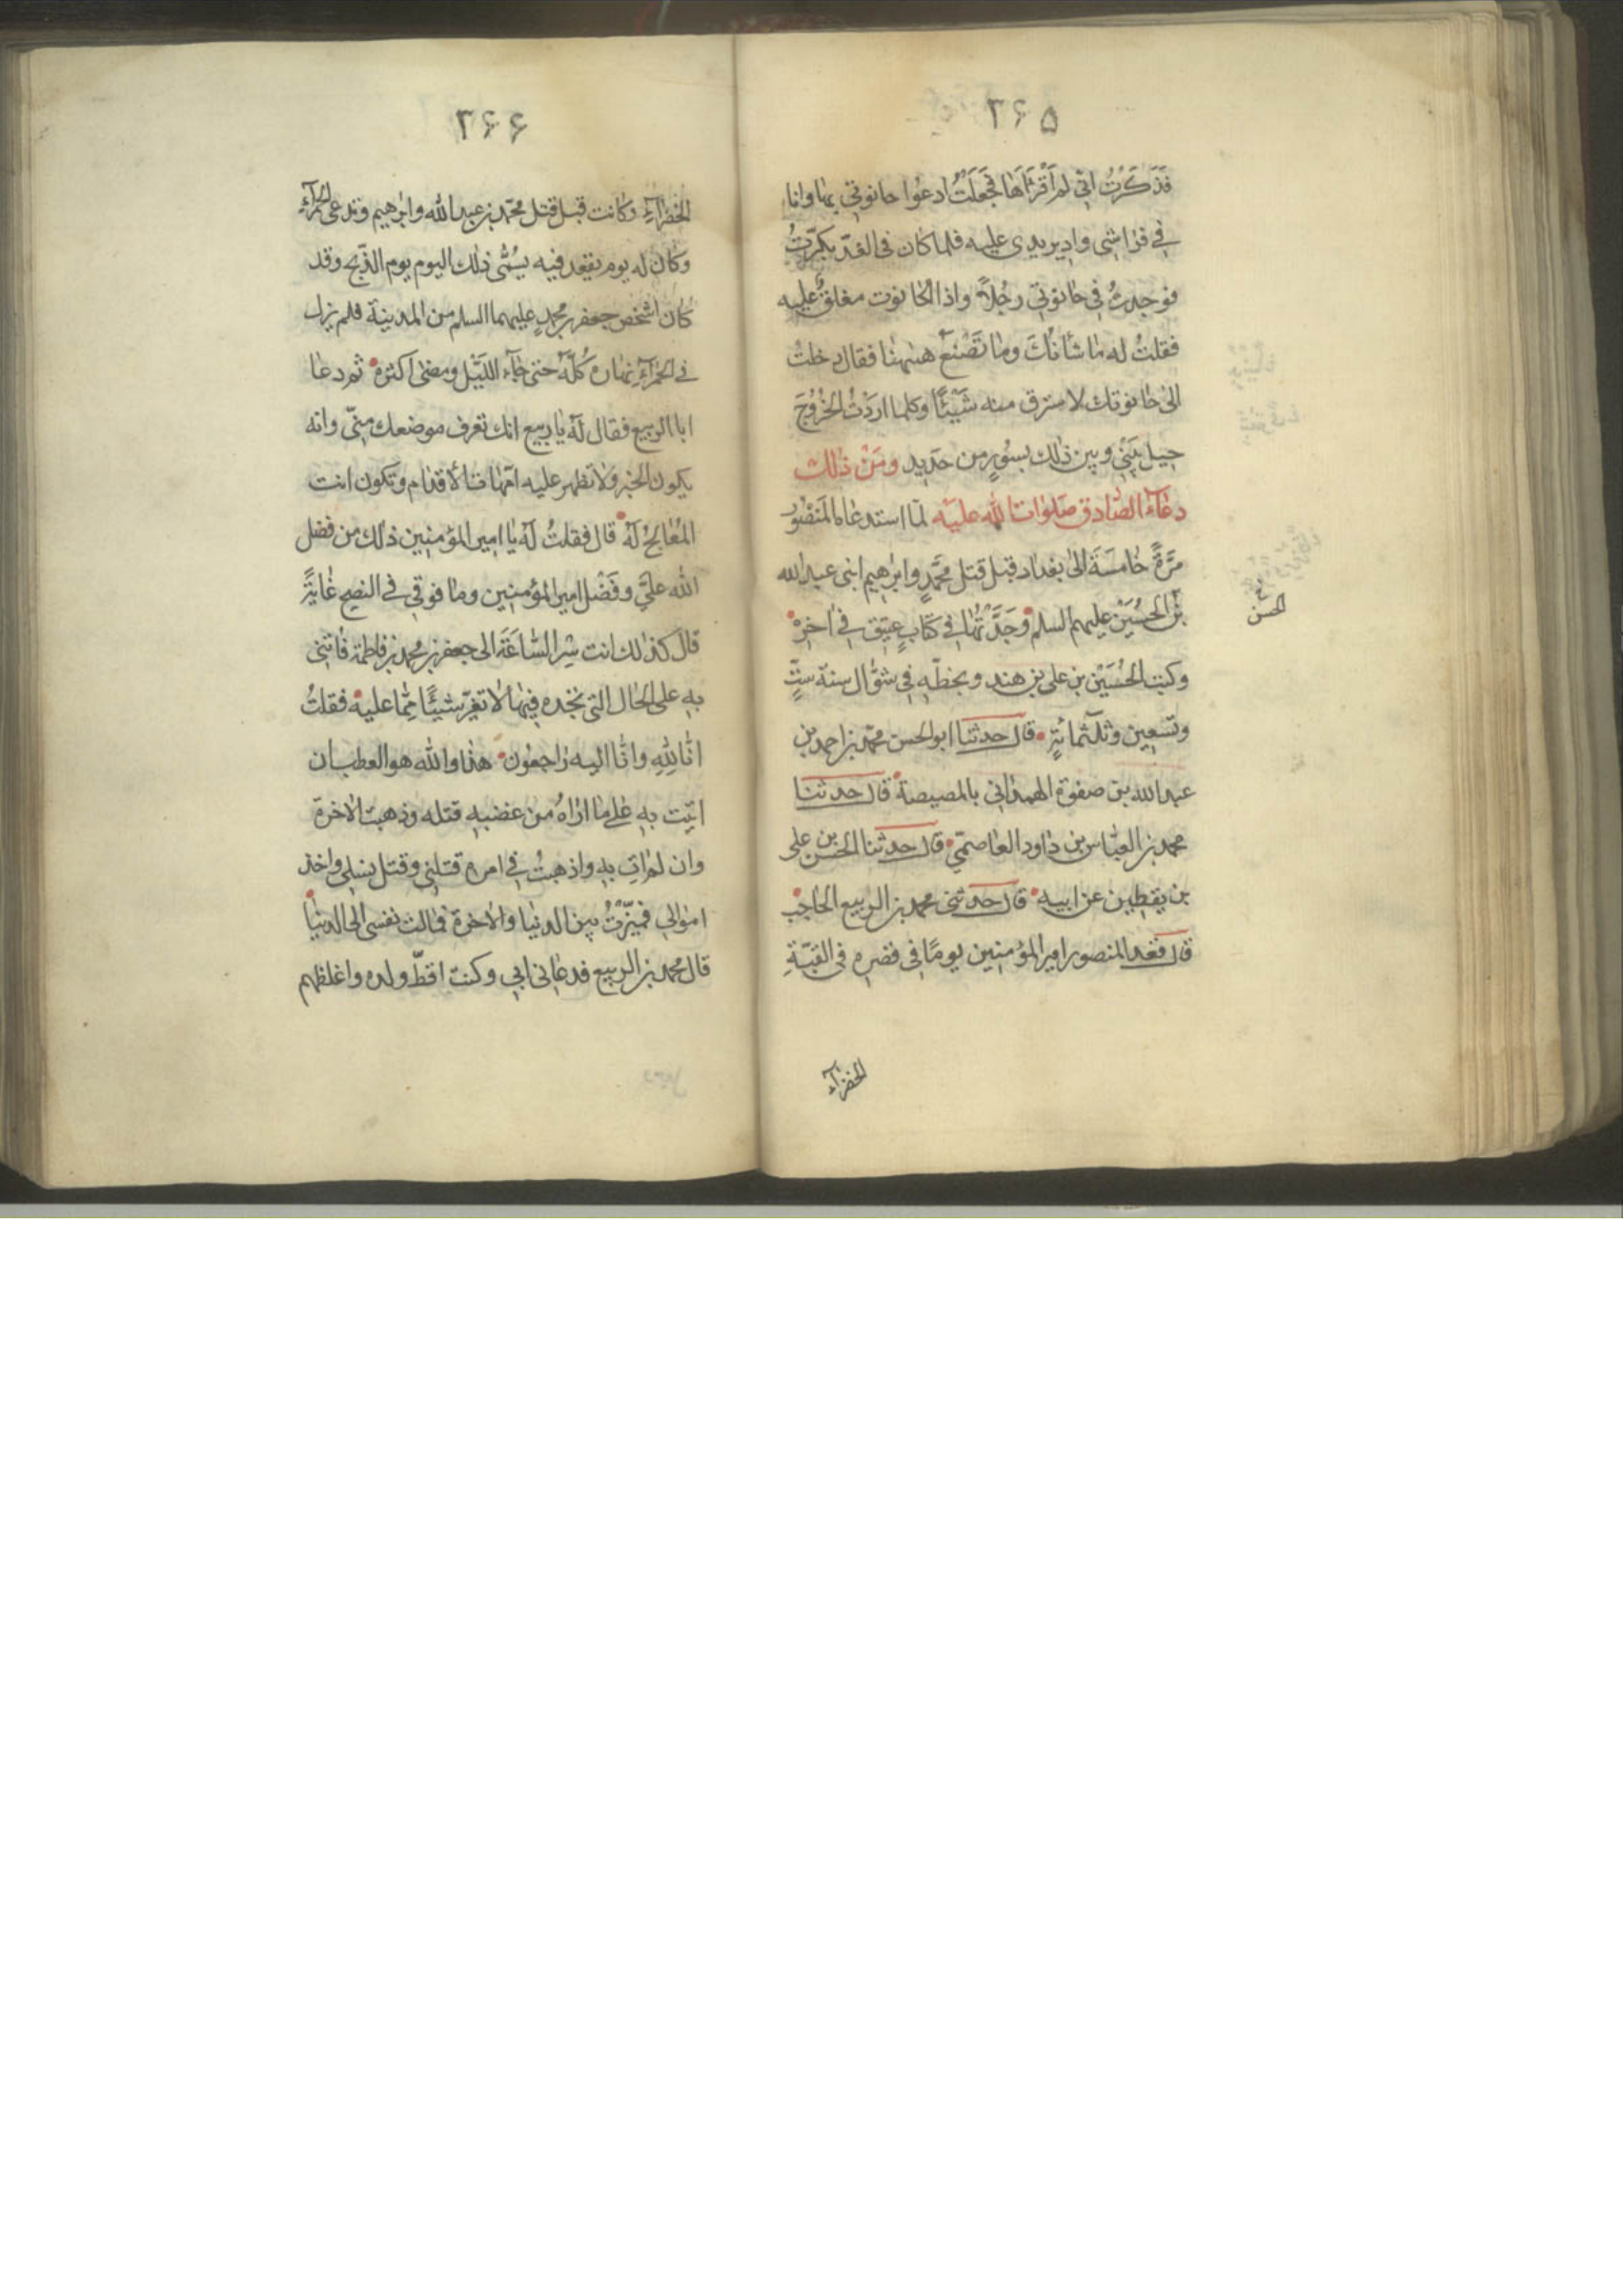 ۲۶۵
فَذَكَرْتُ انّى لم اَقْرَأهَا فَجَعَلْتُ ادعوا حانوتي بها وانا
فى فراشى وادير يدى عليه فلما كان فى الغد بكّرتُ
فوجدتُ فى حانوتى رجُلاً واذا الحانوت مغلقٌ عليه
فقلتُ له ما شأنُكَ وما تَصْنَعُ هٰهنا فقال دخلتُ
الى حانوتك لاسترق منه شَيْئًا وكلما اردتُ الخُرُوجَ
حيل بَيْنى وبين ذلك بسُورٍ من حديد ومن ذلك
دعاء الصّادق صَلَوات الله عليه لمّا استدعاه المنصُور
مَرَّةً خامسَةً الىٰ بغداد قبل قتل محمَّدٍ وابرٰهيم ابنى عبد الله
بن الحُسَيْن عليهم السلم وَجَدْتُها فى كتابٍ عتيق فى اخره
الحسن
وكتب الحُسَيْن بن على بن هند وبخطّه فى شوّال سنة ستٍّ
وتسعين وثلثمائةٍ قال حدثنا ابو الحسن محمّد بن احمد بن
عبد الله بن صفوة الهمدانى بالمصيصة قال حدثنا
محمد بن العبّاس بن داود العاصمّي قال حدثنا الحسن بن على
بن يقطين عن ابيه قال حدثنى محمد بن الربيع الحاجب
قال قعد المنصور امير المؤمنين يومًا فى قصره فى القبّةِ
الخضرآء
۲۶۶
الخضرآء وكانت قبل قتل محمّد بن عبد الله وابرٰهيم وتدعى الحمرآء
وكان له يوم يقعد فيه يسُمّى ذلك اليوم يوم الذّبح وقد
كان اشخص جعفر بن محمدٍ عليهما السلم من المدينة فلم يزل
فى الحمرآء نهاره كُلّه حتى جآء الليّل ومضى اكثره ثم دعا
ابا الربيع فقال له يا ربيع انك تعرف موضعك منّى وانه
يكون الخبر ولا تظهر عليه امّهات الأقدام وتكون انت
المُعالجُ له قال فقلتُ له يا امير المؤمنين ذلك من فضل
الله علىَّ وفَضْل امير المؤمنين وما فوقى فى النصح غايةٌ
قال كذلك انت سِرِ السّاعَةَ الى جعفر بن محمد بن فاطمة فاتنى
به على الحال التى تجده فيها لا تغيّر شيئًا ممّا عليه فقلتُ
انّا لِلّٰهِ وانّا اليه راجعُون هذا والله هو العطب ان
اتيت به على ما اراهُ من غضبه قتله وذهبت الاخرة
وان لم اتِ به واذهبتُ فى امره قتلنى وقتل نسلى واخذ
اموالي فميّزتُ بين الدنيا والاخرة فمالت نفسى الى الدنيا
قال محمد بن الربيع فدعانى ابى وكنت افظّ ولده واغلظهم